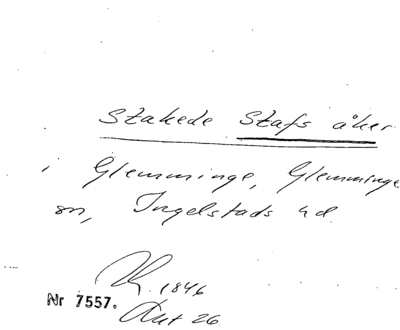 Stakede Stafs åker
i Glemminge, Glemminge
sn, Ingelstads hd.
1846
Nr 7557.
26